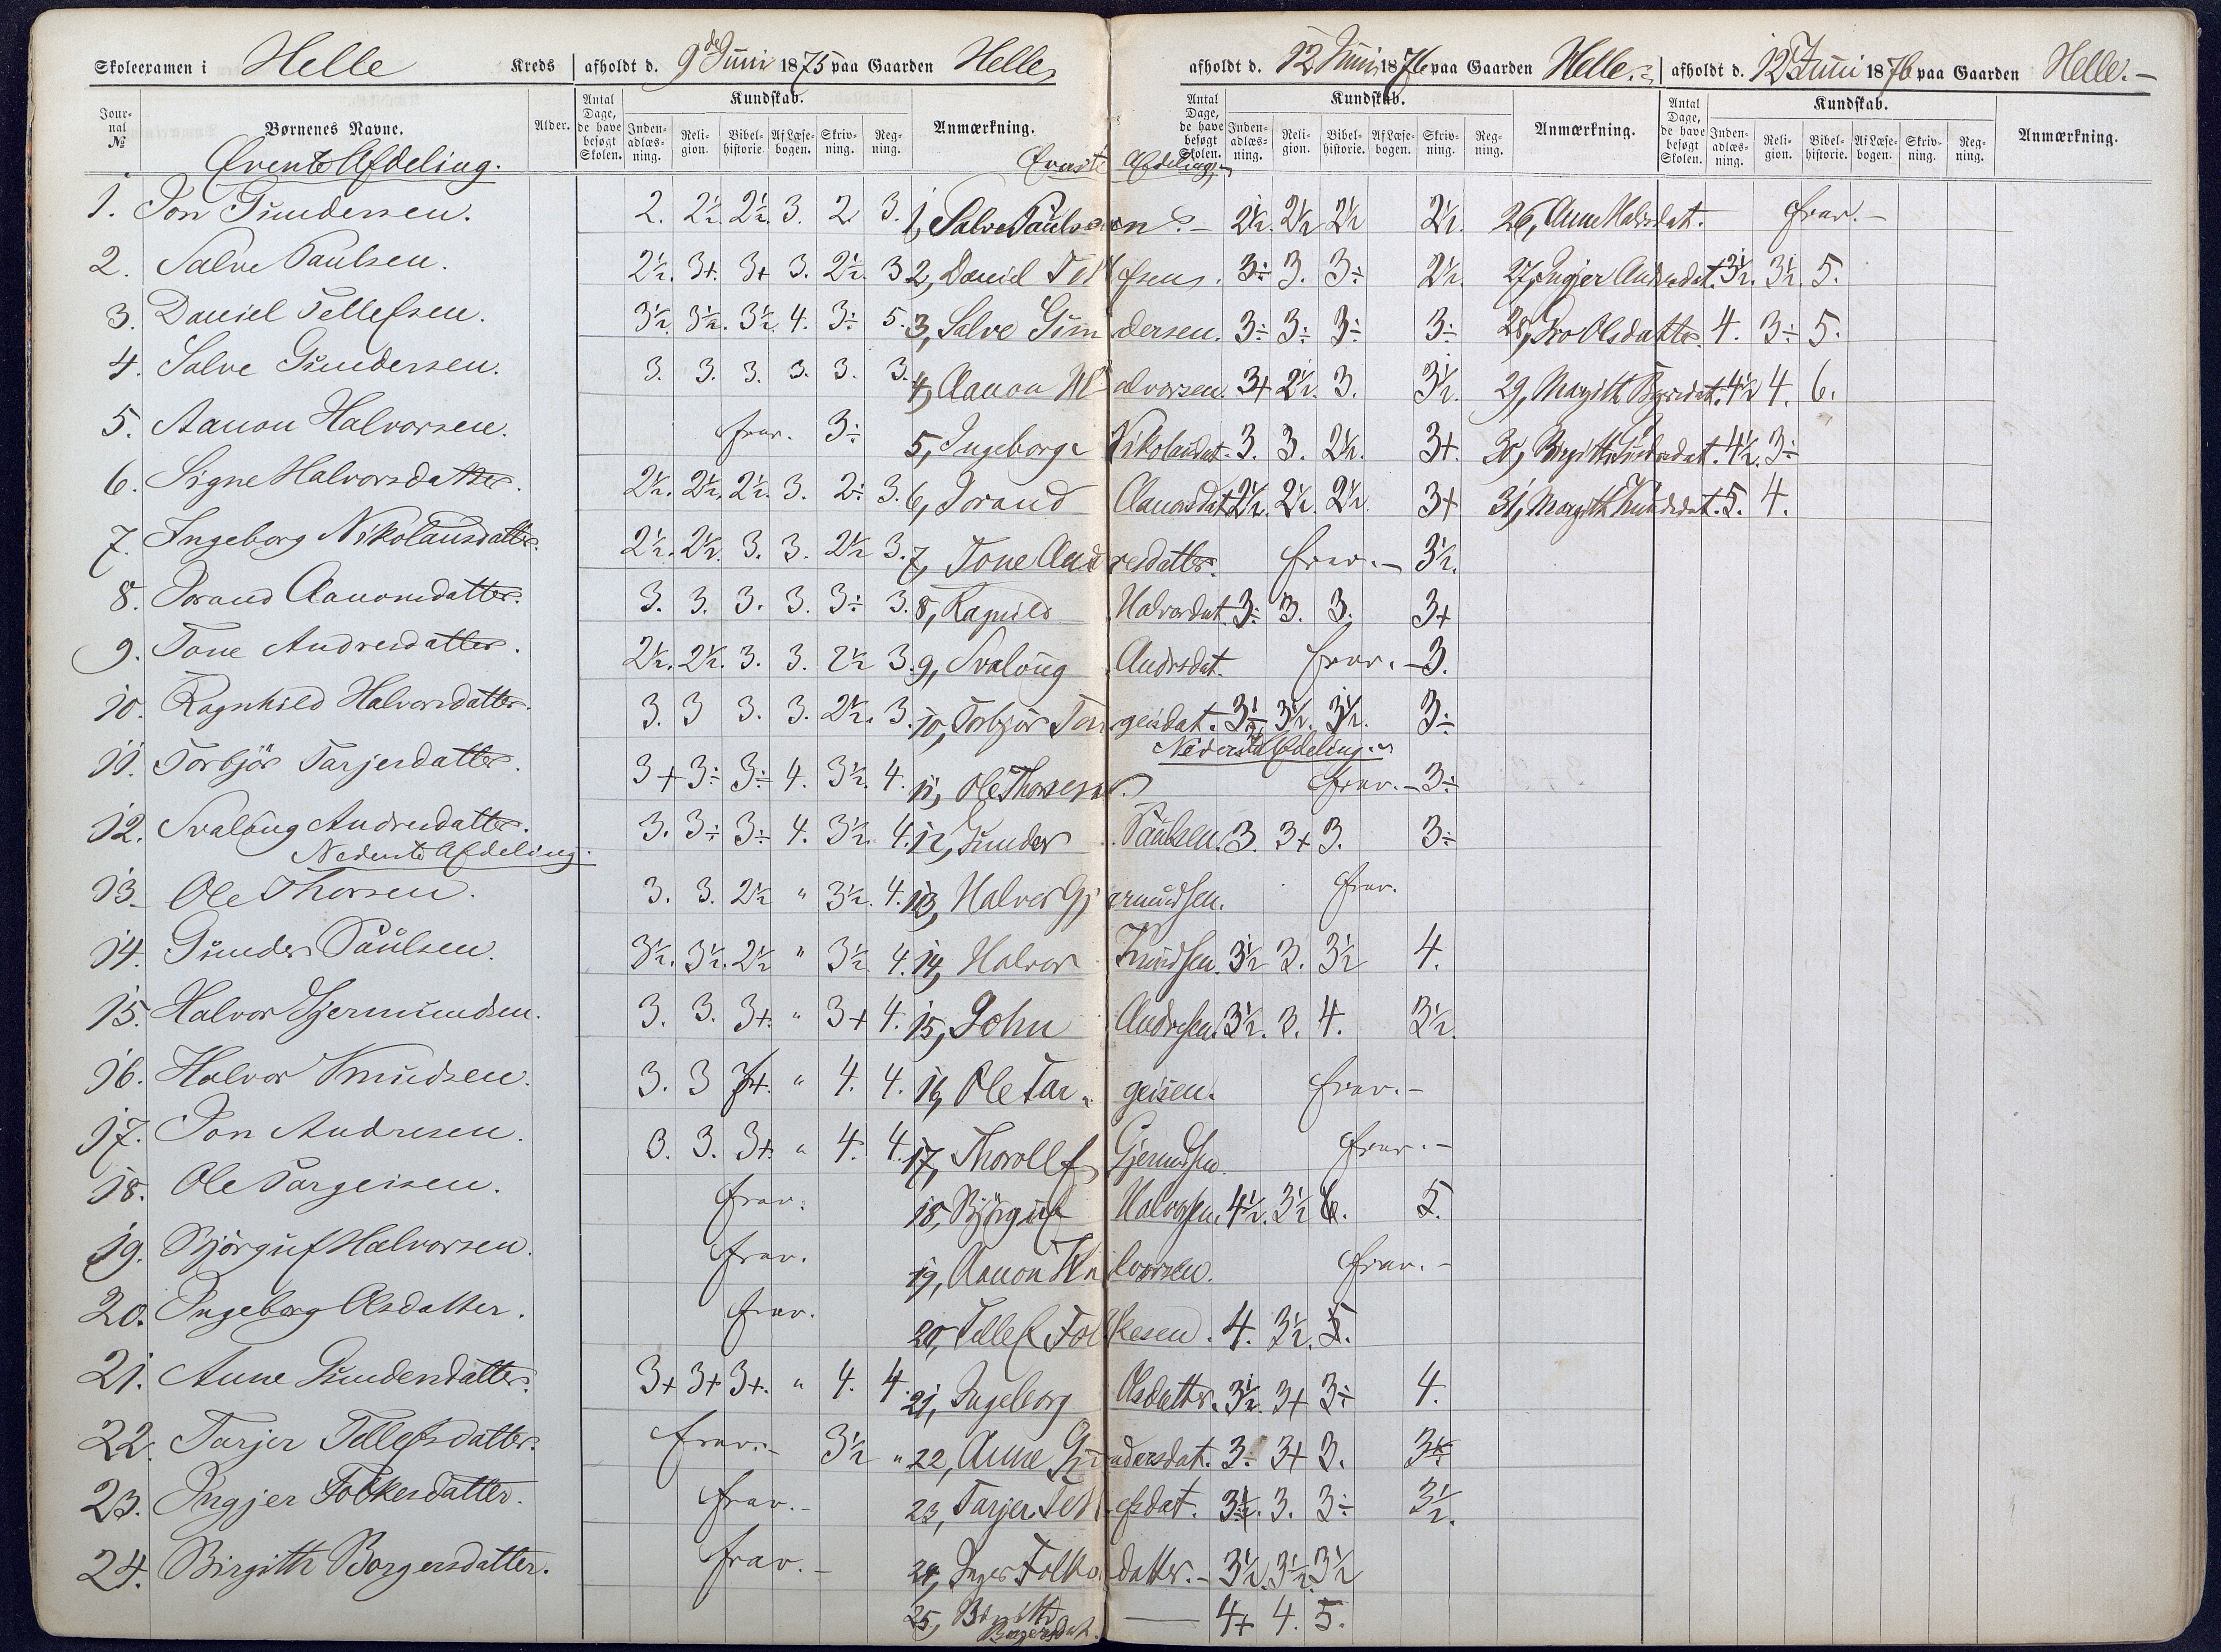 Skoleexamen i Helle Kreds afholdt d. 9de Juni 1875 paa Gaarden Helle
Jour-nal № Børnenes Navne. Alder. Antal Dage, de have besøgt Skolen. Kundskab. Inden-adlæs-ning. Reli-gion. Bibel-historie. Af Læse-bogen. Skriv-ning. Reg-ning. Anmærkning.
Øverste Afdeling.
1. Jon Gundersen. 2. 2½. 2½. 3. 2. 3.
2. Salve Paulsen. 2½. 3+. 3+ 3. 2½. 3
3. Daniel Tellefsen. 3½. 3½. 3½. 4. 3÷ 5.
4. Salve Gundersen. 3. 3. 3. 3. 3. 3.
5. Aanon Halvorsen. frav. 3÷
6. Signe Halvorsdatter. 2½. 2½. 2½. 3. 2÷ 3.
7. Ingeborg Nikolausdatter. 2½. 2½. 3. 3. 2½ 3.
8. Jorand Aanonsdatter. 3. 3. 3. 3. 3÷ 3.
9. Tone Andresdatter. 2½. 2½. 3. 3. 2½ 3.
10. Ragnhild Halvorsdatter. 3. 3 3. 3. 2½. 3.
11. Torbjör Tarjersdatter. 3+ 3÷ 3÷ 4. 3½. 4.
12. Svalaug Andresdatter. 3. 3÷ 3÷ 4. 3½. 4.
Nederste Afdeling.
13. Ole Thorsen. 3. 3. 2½ " 3½. 4.
14. Gunder Paulsen. 3½. 3½. 2½ " 3½ 4.
15. Halvor Gjermundsen. 3. 3. 3+. " 3+ 4.
16. Halvor Knudsen. 3. 3 3+. " 4. 4.
17. Jon Andresen. 3. 3. 3+. " 4. 4.
18. Ole Targeisen. frav.
19. Bjørguf Halvorsen. frav.
20. Ingeborg Olsdatter. frav.
21. Anne Gundersdatter. 3+ 3+ 3+. " 4. 4.
22. Tarjer Tellefsdatter. frav.- 3½ "
23. Ingjer Folkesdatter. frav.-
24. Birgith Borgersdatter. frav.-
afholdt d. 12 Juni 1876 paa Gaarden Helle.
Antal Dage, de have besøgt Skolen. Kundskab. Inden-adlæs-ning. Reli-gion. Bibel-historie. Af Læse-bogen. Skriv-ning. Reg-ning. Anmærkning.
Øverste Afdeling.
1, Salve Paulsen.- 2½. 2½ 2½ 2½.
2, Daniel Tellefsen. 3÷ 3. 3÷ 2½.
3, Salve Gundersen. 3÷ 3÷ 3÷ 3÷
4, Aanon Halvorsen. 3+ 2½. 3. 3½.
5, Ingeborg Nikolausdat. 3. 3. 2½. 3+.
6, Jorand Aanonsdat. 2½. 2½. 2½. 3+
7, Tone Andresdatter. frav.- 3½.
8, Ragnild Halvorsdat. 3÷ 3. 3. 3+
9, Svalaug Andrsdat. frav.- 3.
10, Torbjör Targeisdat. 3½ 3½. 3½. 3÷
Nederste Afdeling.
11, Ole Thorsen. frav.- 3÷
12, Gunder Paulsen. 3. 3+ 3. 3÷
13, Halvor Gjermundsen. frav.
14, Halvor Knudsen. 3½ 3. 3½ 4.
15, John Andresen. 3½. 3. 4. 3½.
16, Ole Targeisen. frav.-
17, Thorolf Gjermdsen. frav.-
18, Bjørguf Halvorsen. 4½. 3½ 6. 5.
19, Aanon Halvorsen. frav.-
20, Tellef Folkesen. 4. 3½. 5.
21, Ingeborg Olsdatter. 3½. 3+ 3÷ 4.
22, Anne Gundersdat. 3÷ 3+ 3.
23, Tarjer Tellefsdat. 3½. 3. 3÷ 3½.
24, Inger Folkesdatter.- 3½. 3½. 3½
25, Birgitte Borgersdat. — 4+ 4. 5.
afholdt d. 12 Juni 1876 paa Gaarden Helle.-
Antal Dage, de have besøgt Skolen. Kundskab. Inden-adlæs-ning. Reli-gion. Bibel-historie. Af Læse-bogen. Skriv-ning. Reg-ning. Anmærkning.
26, Anne Halvsdat. frav.-
27, Ingjer Andresdat. 3½. 3½. 5.
28, Pro Olsdatter. 4. 3÷ 5.
29, Margith 4½ 4. 6.
30, Birgith 4½. 3÷
31, Margith Knudsdat. 5. 4.